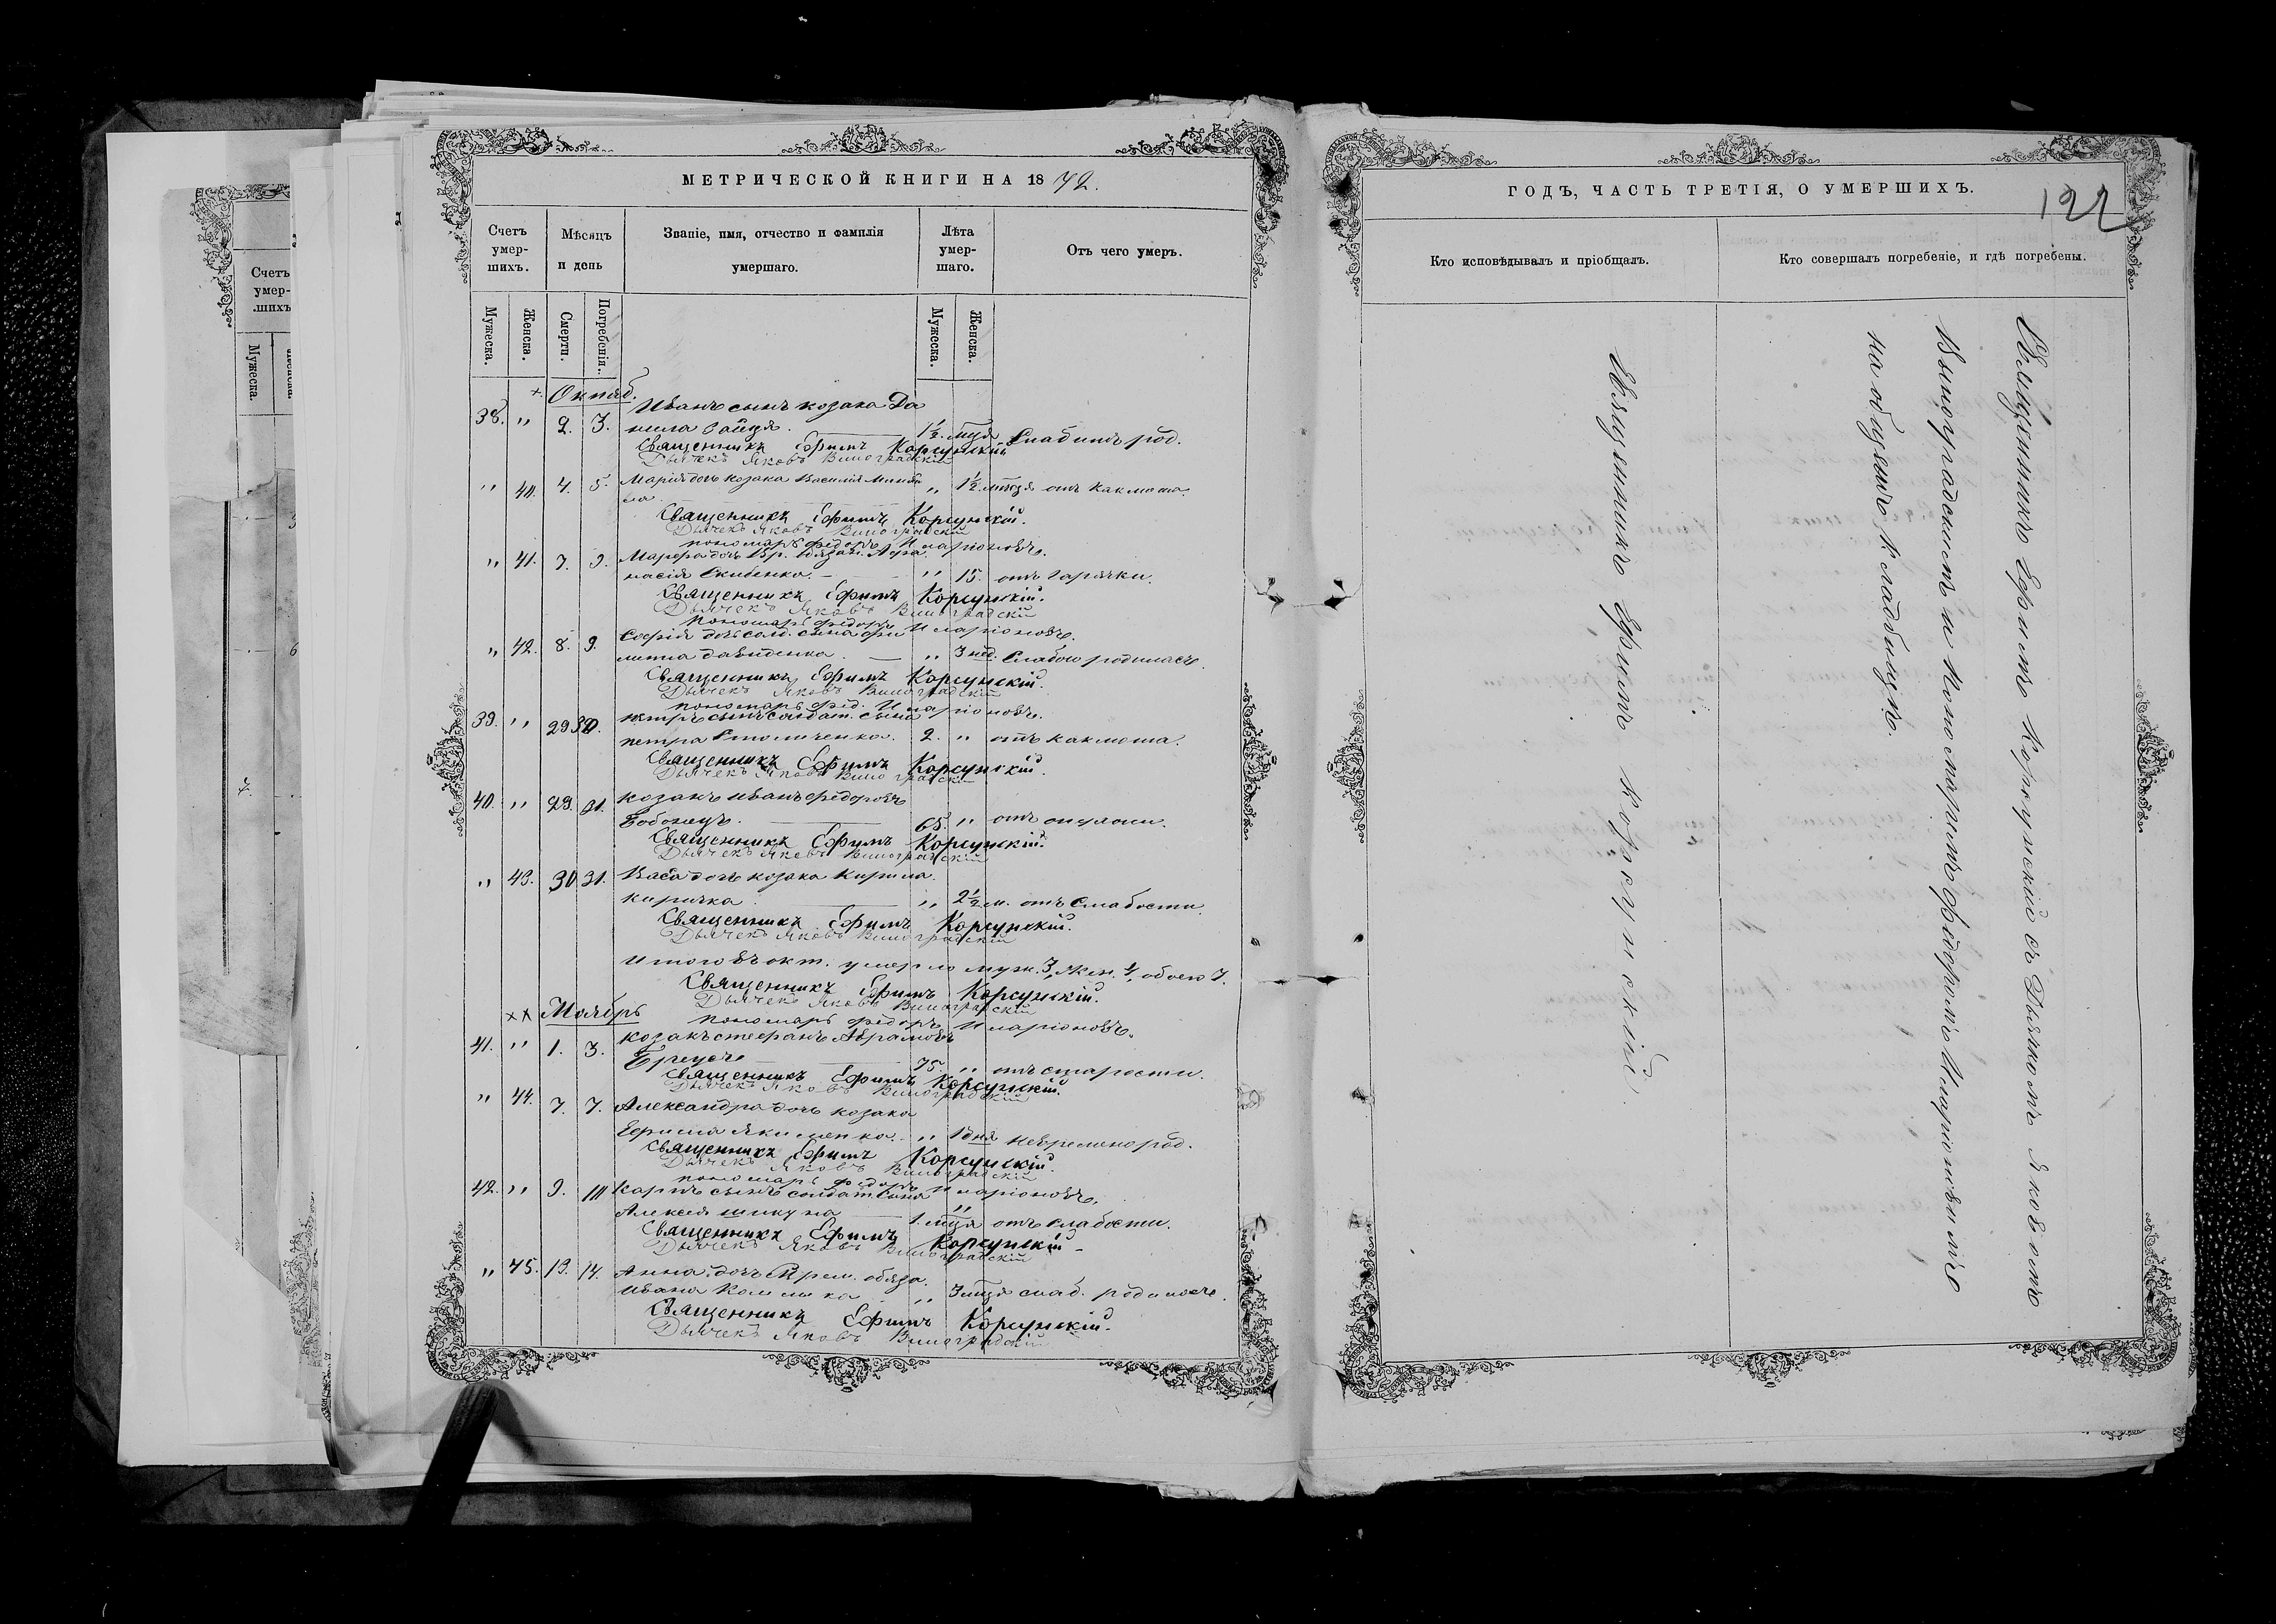 МЕТРИЧЕСКОЙ КНИГИ НА 1872.
Счетъ умер-шихъ.
Мѣсяцъ и день
Званіе, имя, отчество и фамилія умершаго.
Лѣта умер-шаго.
Отъ чего умеръ.
Мужеска.
Женска.
Смерти.
Погребенія.
Мужеска.
Женска.
Октяб.
Иванъ сынъ козака Да
38. " 2. 3. нила 1½ мця Слабымъ род.
Священникъ Ефимъ Корсунскій
Дьячекъ Яковъ Виноградскій
" 40. 4. 5. Марія дочь козака Василія " 1½ мця отъ Каклюша.
Священникъ Ефимъ Корсунскій.
Дьячекъ Яковъ Виноградскій
пономарь Федоръ Иларіоновъ.
" 41. 7. 9. Марфа дочь Вр. обязан. Афа
насія Скибенка. " 15. отъ Гарячки.
Священникъ Ефимъ Корсунскій.
Дьячекъ Яковъ Виноградскій
Пономарь Федоръ Иларіоновъ.
" 42. 8. 9. Софія дочь солд. сына Фи
липа Давиденка. " 3 нед. Слабою родилась.
Священникъ Ефимъ Корсунскій.
Дьячекъ Яковъ Виноградскій
пономарь Фед. Иларіоновъ.
39. " 29 30. петръ сынъ солдат. сына
петра Столиченка. 2. " отъ каклюша.
Священникъ Ефимъ Корсунскій.
Дьячекъ Яковъ Виноградскій
40. " 29. 31. козакъ Иванъ Федоровъ
Бобонецъ. 65. " отъ опухоли.
Священникъ Ефимъ Корсунскій.
Дьячекъ Яковъ Виноградскій
" 43. 30 31. Васса дочь козака Кирила
Киричка " 2½ м. отъ Слабости.
Священникъ Ефимъ Корсунскій.
Дьячекъ Яковъ Виноградскій
Итого въ окт. умерло муж. 3, Жен. 4, обоего 7.
Священникъ Ефимъ Корсунскій.
Дьячекъ Яковъ Виноградскій
Пономарь Федоръ Иларіоновъ.
Ноябрь
41. " 1. 3. Козакъ Стефанъ Аврамовъ
75. " отъ старости.
Священникъ Ефимъ Корсунскій.
Дьячекъ Яковъ Виноградскій
" 44. 7. 7. Александра дочь козака
Ефима Якименка. " 1 дня невременно род.
Священникъ Ефимъ Корсунскій.
Дьячекъ Яковъ Виноградскій
пономарь Федоръ Иларіоновъ.
42. " 9. Карпъ сынъ солдат. сына
Алексея Шикуна 1. мця " отъ слабости.
Священникъ Ефимъ Корсунскій
Дьячекъ Яковъ Виноградскій
" 45. 13. 14. Анна дочь Врем. обяза.
Ивана " 3 мця слаб. родилась.
Священникъ Ефимъ Корсунскій.
Дьячекъ Яковъ Виноградскій
ГОДЪ, ЧАСТЬ ТРЕТІЯ, О УМЕРШИХЪ.
122
Кто исповѣдывалъ и пріобщалъ.
Кто совершалъ погребеніе, и гдѣ погребены.
Священникъ Ефимъ Корсунскій.
Священникъ Ефимъ Корсунскій съ Дьячкомъ Яковомъ
Виноградскимъ и Пономаремъ Федоромъ Иларіоновымъ
на общемъ кладбищѣ.
Счетъ умер-шихъ
Мужеска.